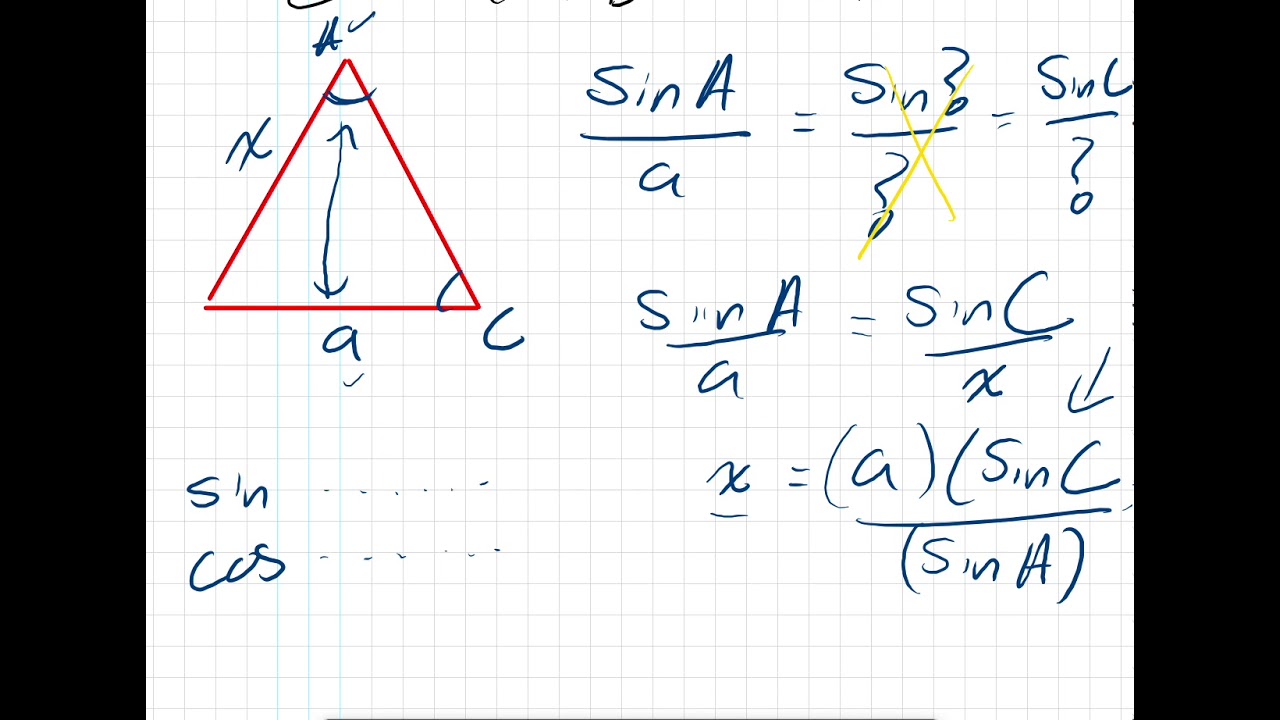 A✓
x
a
✓
C
sin A / a = sin ? / ? = sin C / ?
sin A / a = sin C / x
x = (a)(sin C) / (sin A)
sin .......
cos .......